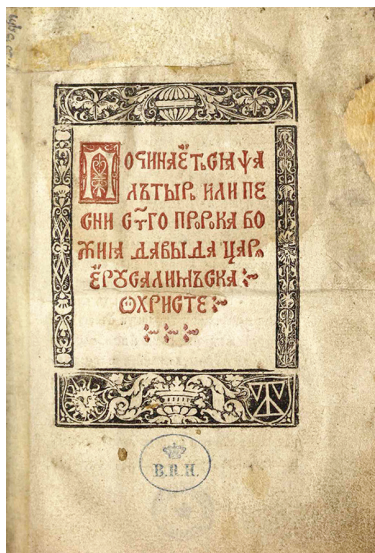 Починаеть сꙗ ѱа
лътырь или пе
сни ст҃го пр҃рка бо
жиꙗ давыда царѧ
ерꙋсалимъска
ѡхристе
В.В.Н.